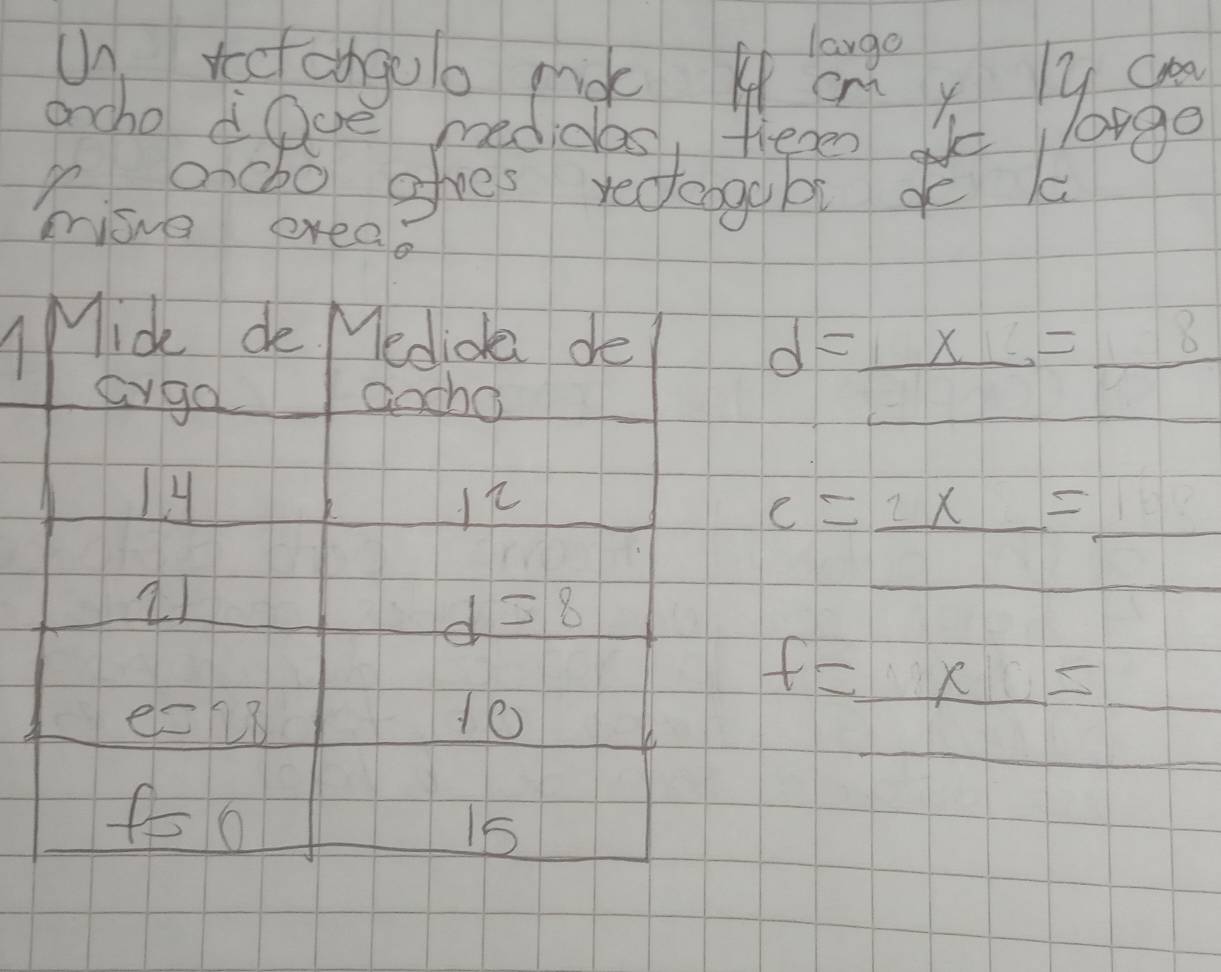 largo
Un rectangulo mide 14 cm y 12 cm
ancho ¿Que medidas, tienen de largo
y ancho otros rectangulos de la
misma area?
1 Mide de argo Medida de ancho
14 12
21 d = 8
e = 28 10
f = 0 15
d = x = 8
e = 2 x =
f = x =